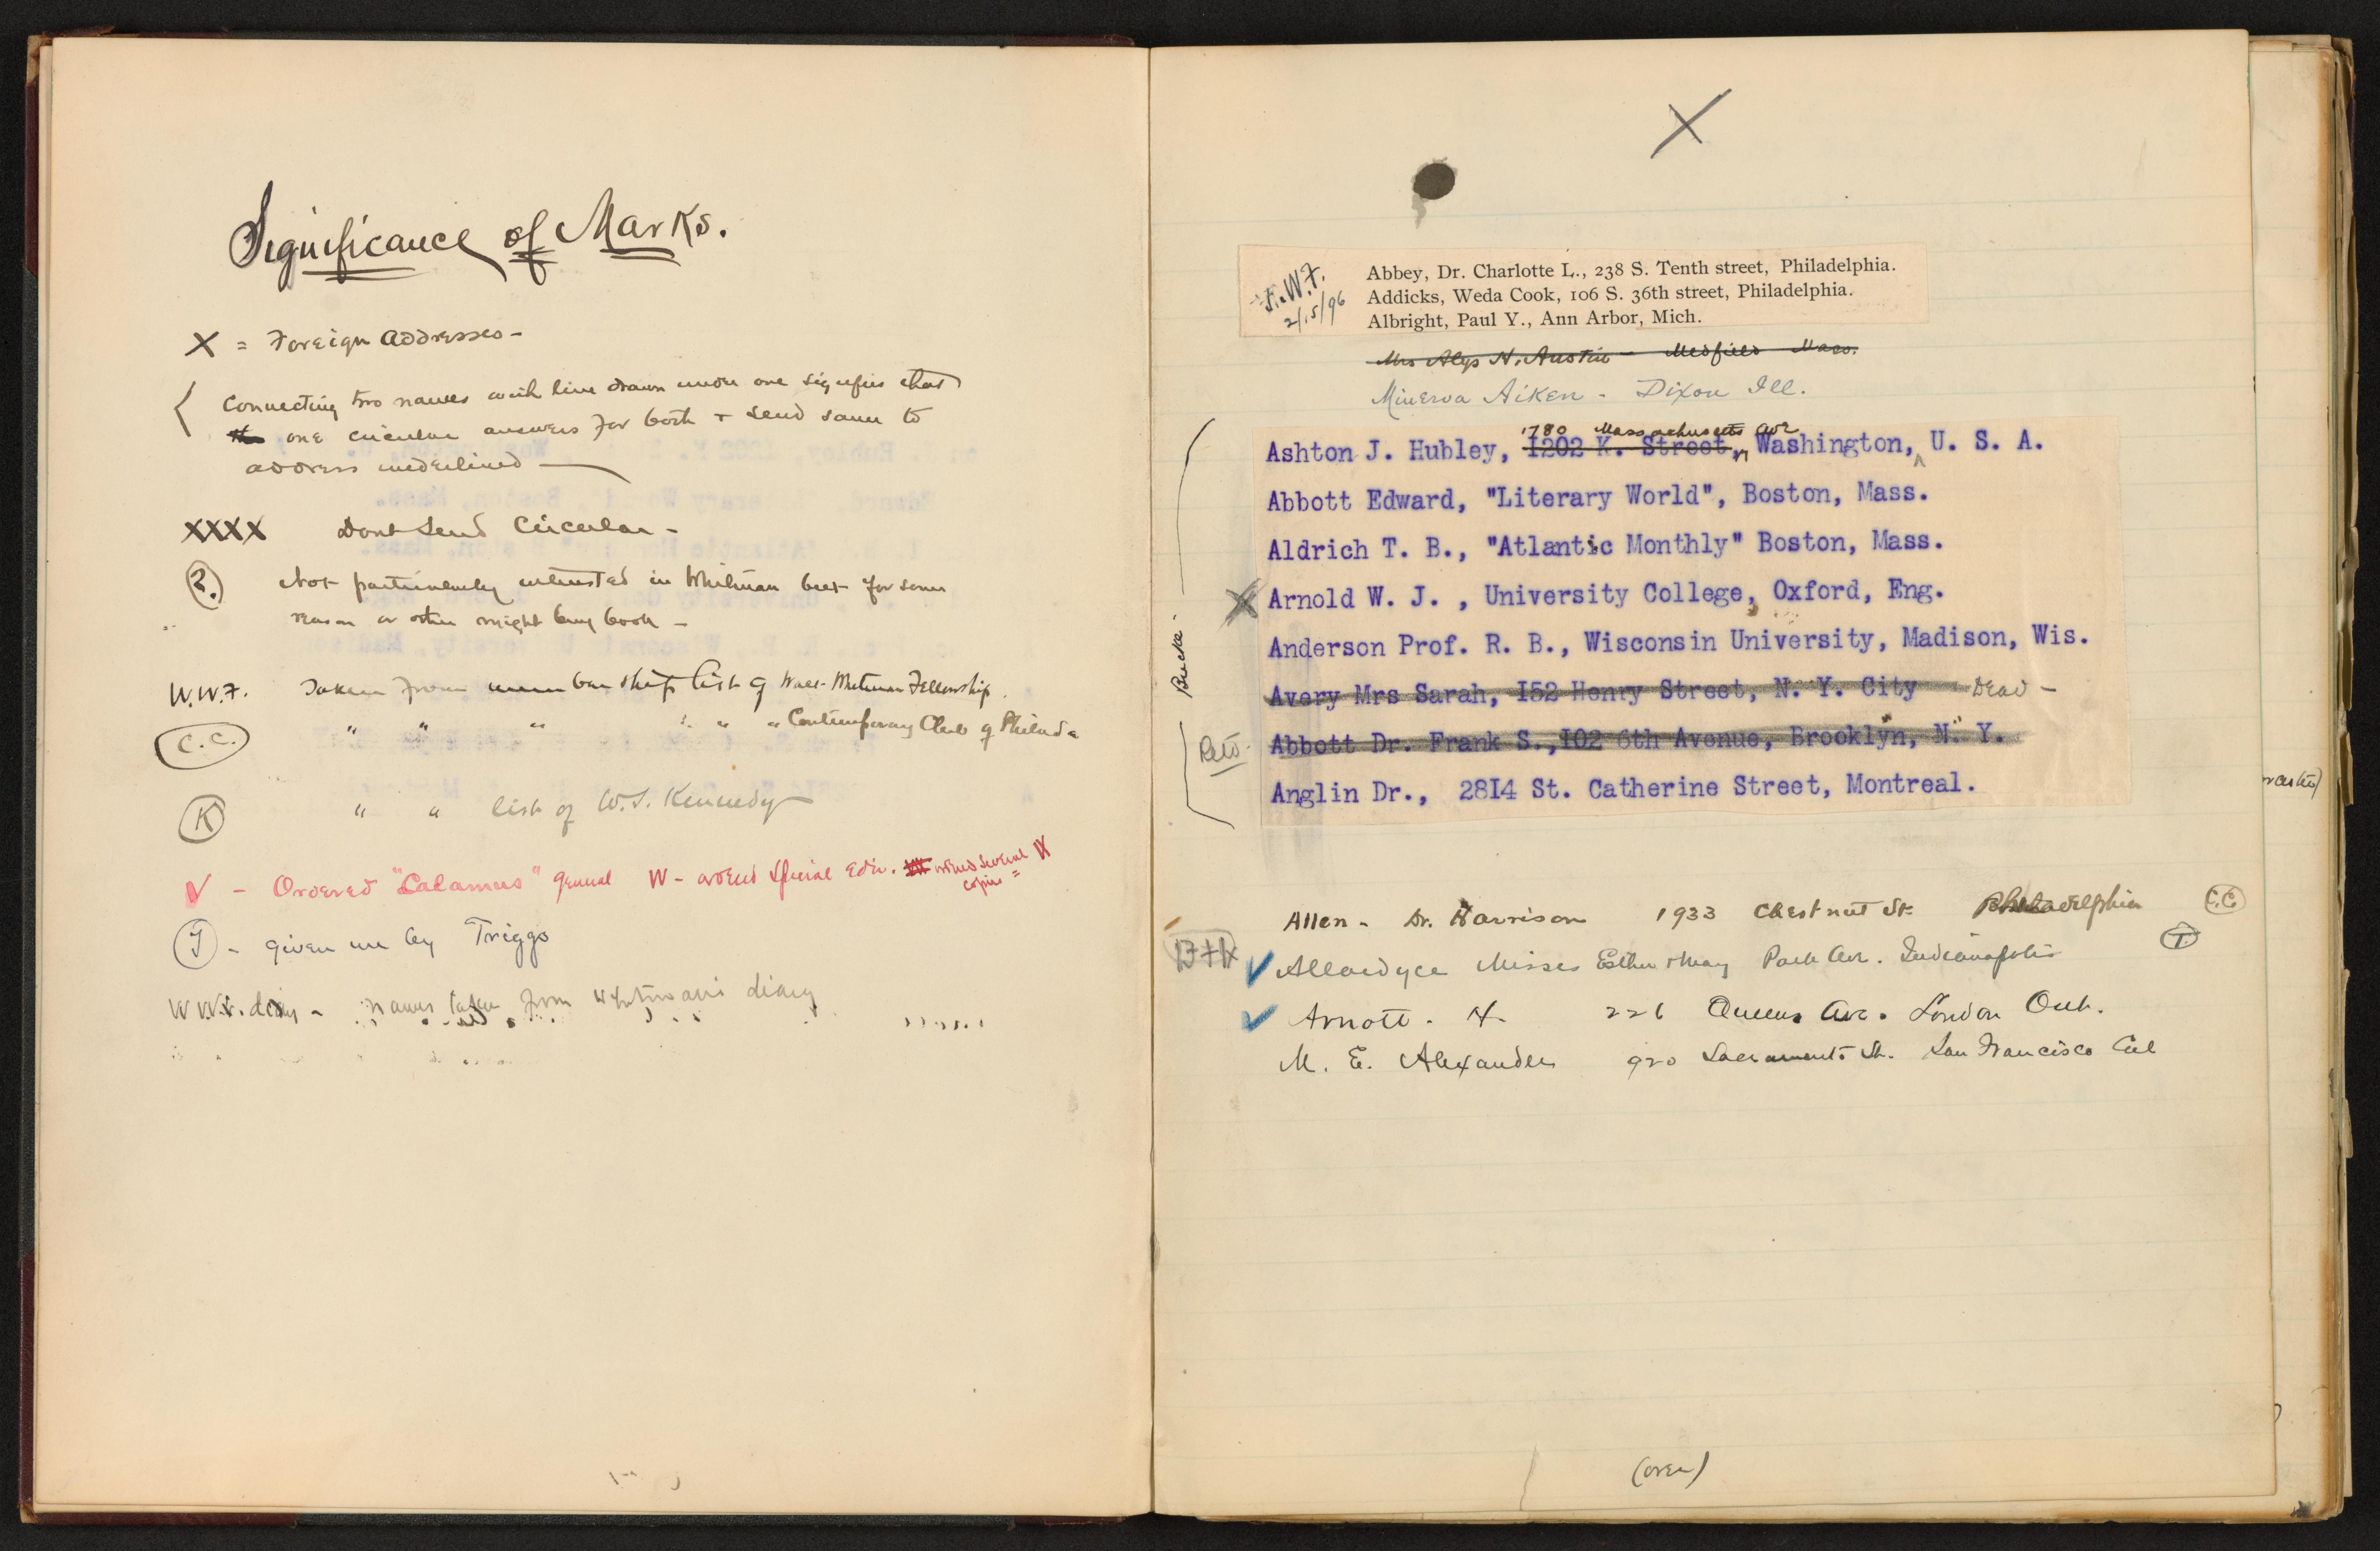 Significance of Marks.
X = Foreign Addresses -
Connecting two names with line drawn under one signifies that
one circular answers for both + send same to
address underlined
XXXX Dont Send Circular -
? Not particularly interested in Whitman but for some
reason or other might buy book -
W.W.F. Taken from membership list of Walt Whitman Fellowship.
C.C. " " " " " " Contemporary Club of Philada
K " " list of W.S. Kennedy
V - Ordered "Calamus" general W - ordered special Edn. ordered several
copies =
T - given me by Triggs
W.W.'s diary - names taken from Whitman's diary
X
W.W.F.
2/15/96
Abbey, Dr. Charlotte L., 238 S. Tenth street, Philadelphia.
Addicks, Weda Cook, 106 S. 36th street, Philadelphia.
Albright, Paul Y., Ann Arbor, Mich.
Mrs Alys N. Austin - Medfield Mass.
Minerva Aiken - Dixon Ill.
1780 Massachusetts Ave
Ashton J. Hubley, I202 K. Street, Washington, U. S. A.
Abbott Edward, "Literary World", Boston, Mass.
Aldrich T. B., "Atlantic Monthly" Boston, Mass.
X Arnold W. J. , University College, Oxford, Eng.
Bucke
Anderson Prof. R. B., Wisconsin University, Madison, Wis.
Avery Mrs Sarah, I52 Henry Street, N. Y. City Dead -
Abbott Dr. Frank S.,I02 6th Avenue, Brooklyn, N. Y.
Anglin Dr., 28I4 St. Catherine Street, Montreal.
Allen - Dr. Harrison 1933 Chestnut St. Philadelphia C.C.
Allardyce Misses Esther + May Park Ave. Indianapolis T.
Arnott. H. 226 Queens Ave. London Ont.
M. E. Alexander 920 Sacramento St. San Francisco Cal
(over)